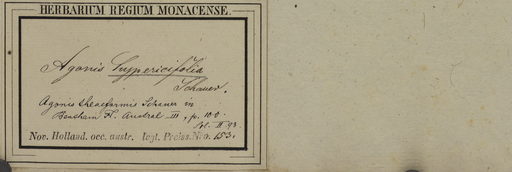 HERBARIUM REGIUM MONACENSE.
Agonis hypericifolia
Schauer.
Agonis theaeformis Schauer in
Bentham Fl. Austral III, p. 100.
Nov. Holland. occ. austr. legt. Preiss. Nro. 153.